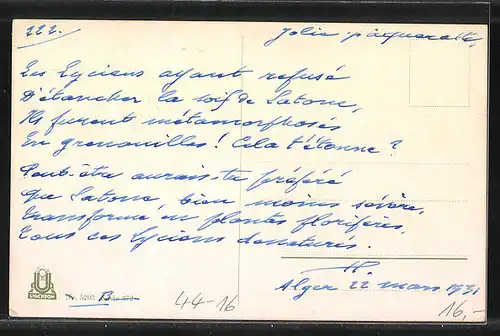 222.
Jolie pâquerette,
Les Lyciens ayant refusé
D'étancher la soif de Latone,
Ils furent métamorphosés
En grenouilles! Cela t'étonne?
Peut-être aurais-tu préféré
Que Latone, bien moins sévère,
Transforme en plantes florifères,
Tous ces Lyciens dénaturés.
Alger 22 mars 1931
44-16
16,-